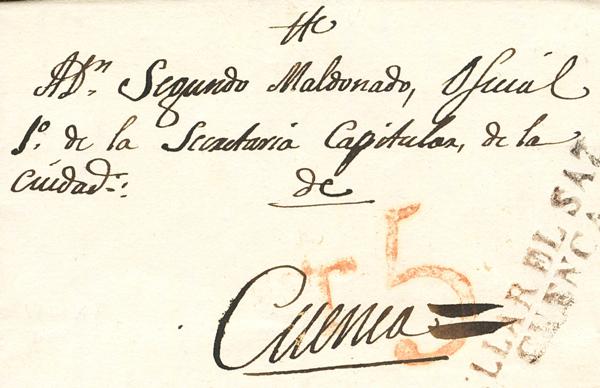 A Dn. Segundo Maldonado, Oficial
1º. de la Secretaría Capitular, de la
Ciudad.
de
Cuenca
5
LLAR EL SAZ
CUENCA